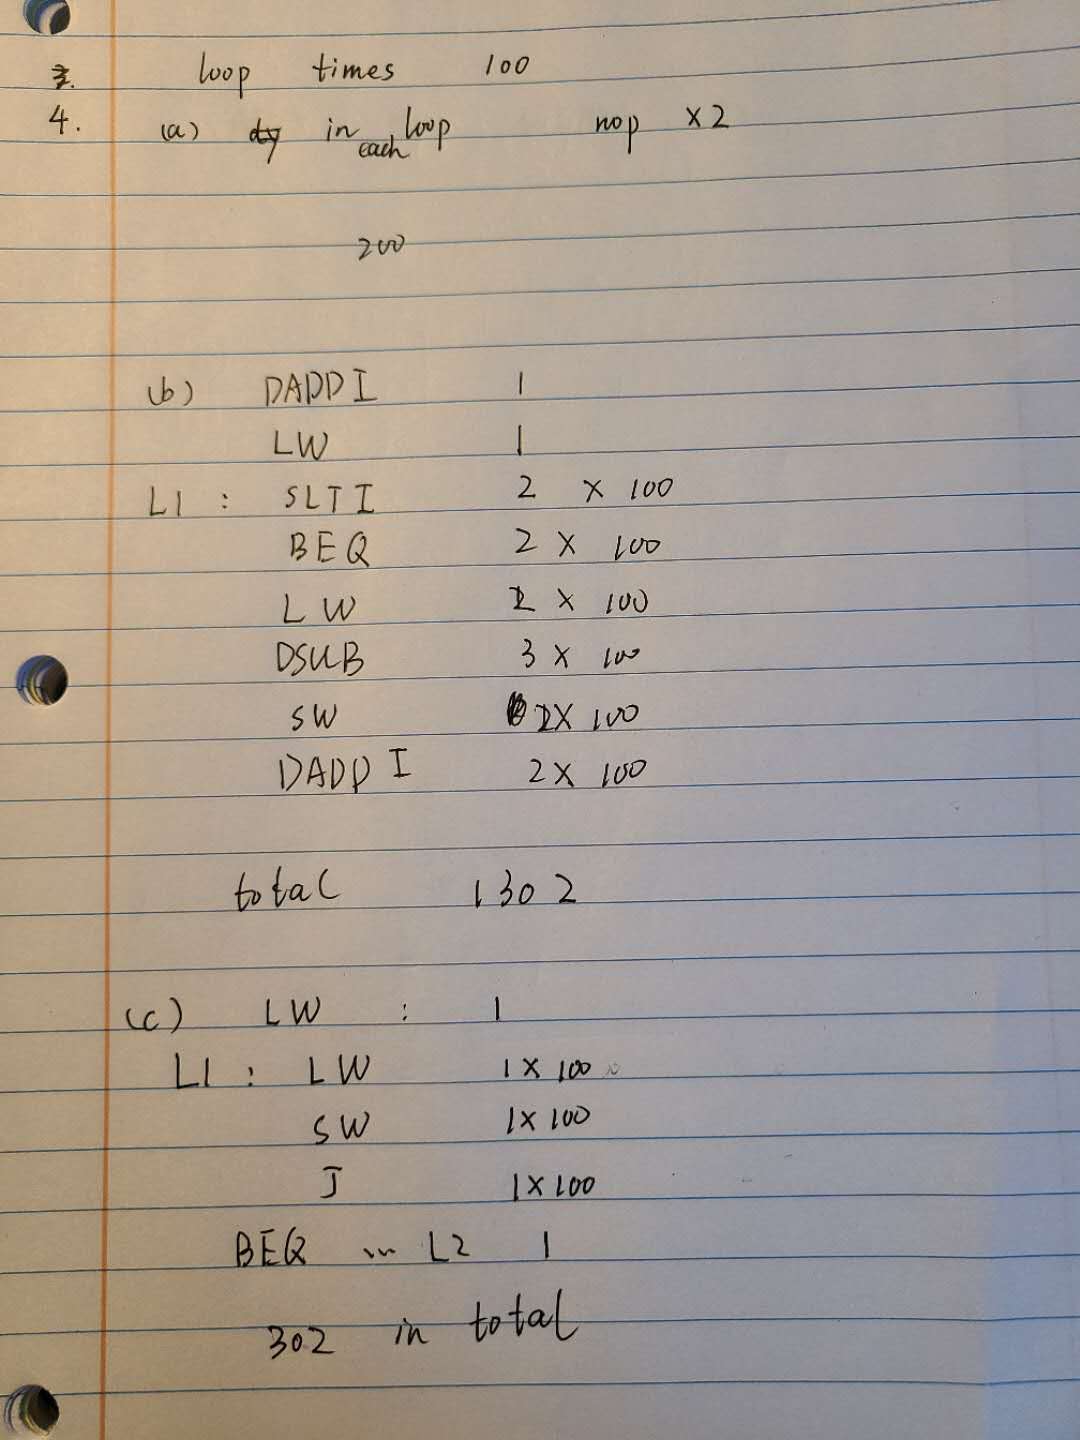 loop times 100
4. (a) in each loop nop × 2
200
(b) DADDI 1
LW 1
L1 : SLTI 2 × 100
BEQ 2 × 100
LW × 100
DSUB 3 × 100
SW × 100
DADDI 2 × 100
total 1302
(c) LW : 1
L1 : LW 1 × 100
SW 1 × 100
J 1 × 100
BEQ ... L2 1
302 in total